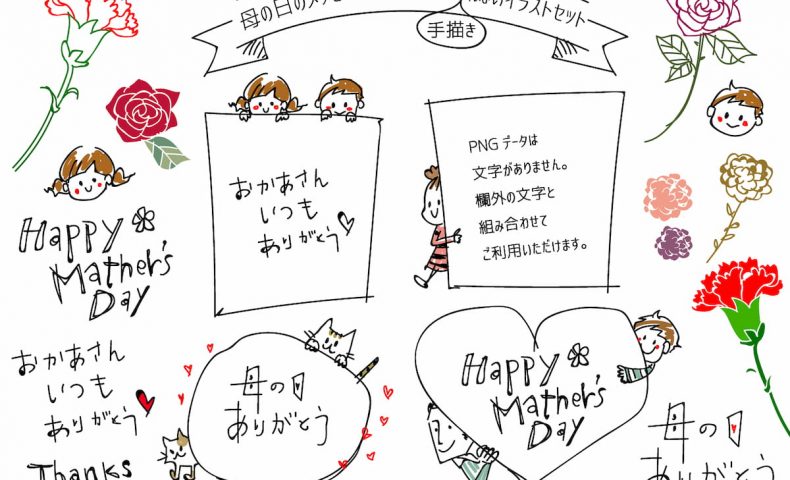 母の日の
かわいいイラストセット
手描き
おかあさん
いつも
ありがとう
PNGデータは
文字がありません。
欄外の文字と
組み合わせて
ご利用いただけます。
Happy
Mather's
Day
おかあさん
いつも
ありがとう
母の日
ありがとう
Happy
Mather's
Day
母の日
ありがとう
Thanks